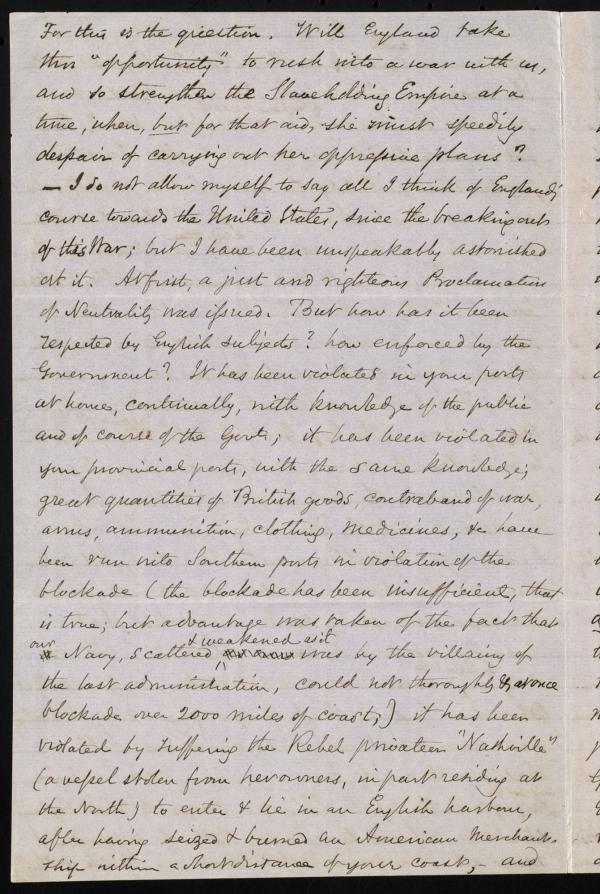 For this is the question. Will England take
this "opportunity" to rush into a war with us,
and so strengthen the Slaveholding Empire at a
time, when, but for that aid, she must speedily
despair of carrying out her oppressive plans?
— I do not allow myself to say all I think of England's
course towards the United States, since the breaking out
of this War; but I have been unspeakably astonished
at it. At first, a just and righteous Proclamation
of Neutrality was issued. But how has it been
respected by English subjects? how enforced by the
Government? It has been violated in your ports
at home, continually, with knowledge of the public
and of course of the Govt; it has been violated in
your provincial ports, with the same knowledge;
great quantities of British goods, contraband of war,
arms, ammunition, clothing, medicines, &c have
been run into Southern ports in violation of the
blockade (the blockade has been insufficient, that
is true; but advantage was taken of the fact that
our Navy, scattered & weakened as it was by the villainy of
the last administration, could not thoroughly & at once
blockade over 2000 miles of coast;) it has been
violated by suffering the Rebel privateer "Nashville"
(a vessel stolen from her owners, in part residing at
the North) to enter & lie in an English harbour,
after having seized & burned an American Merchant-
ship within a short distance of your coast,— and